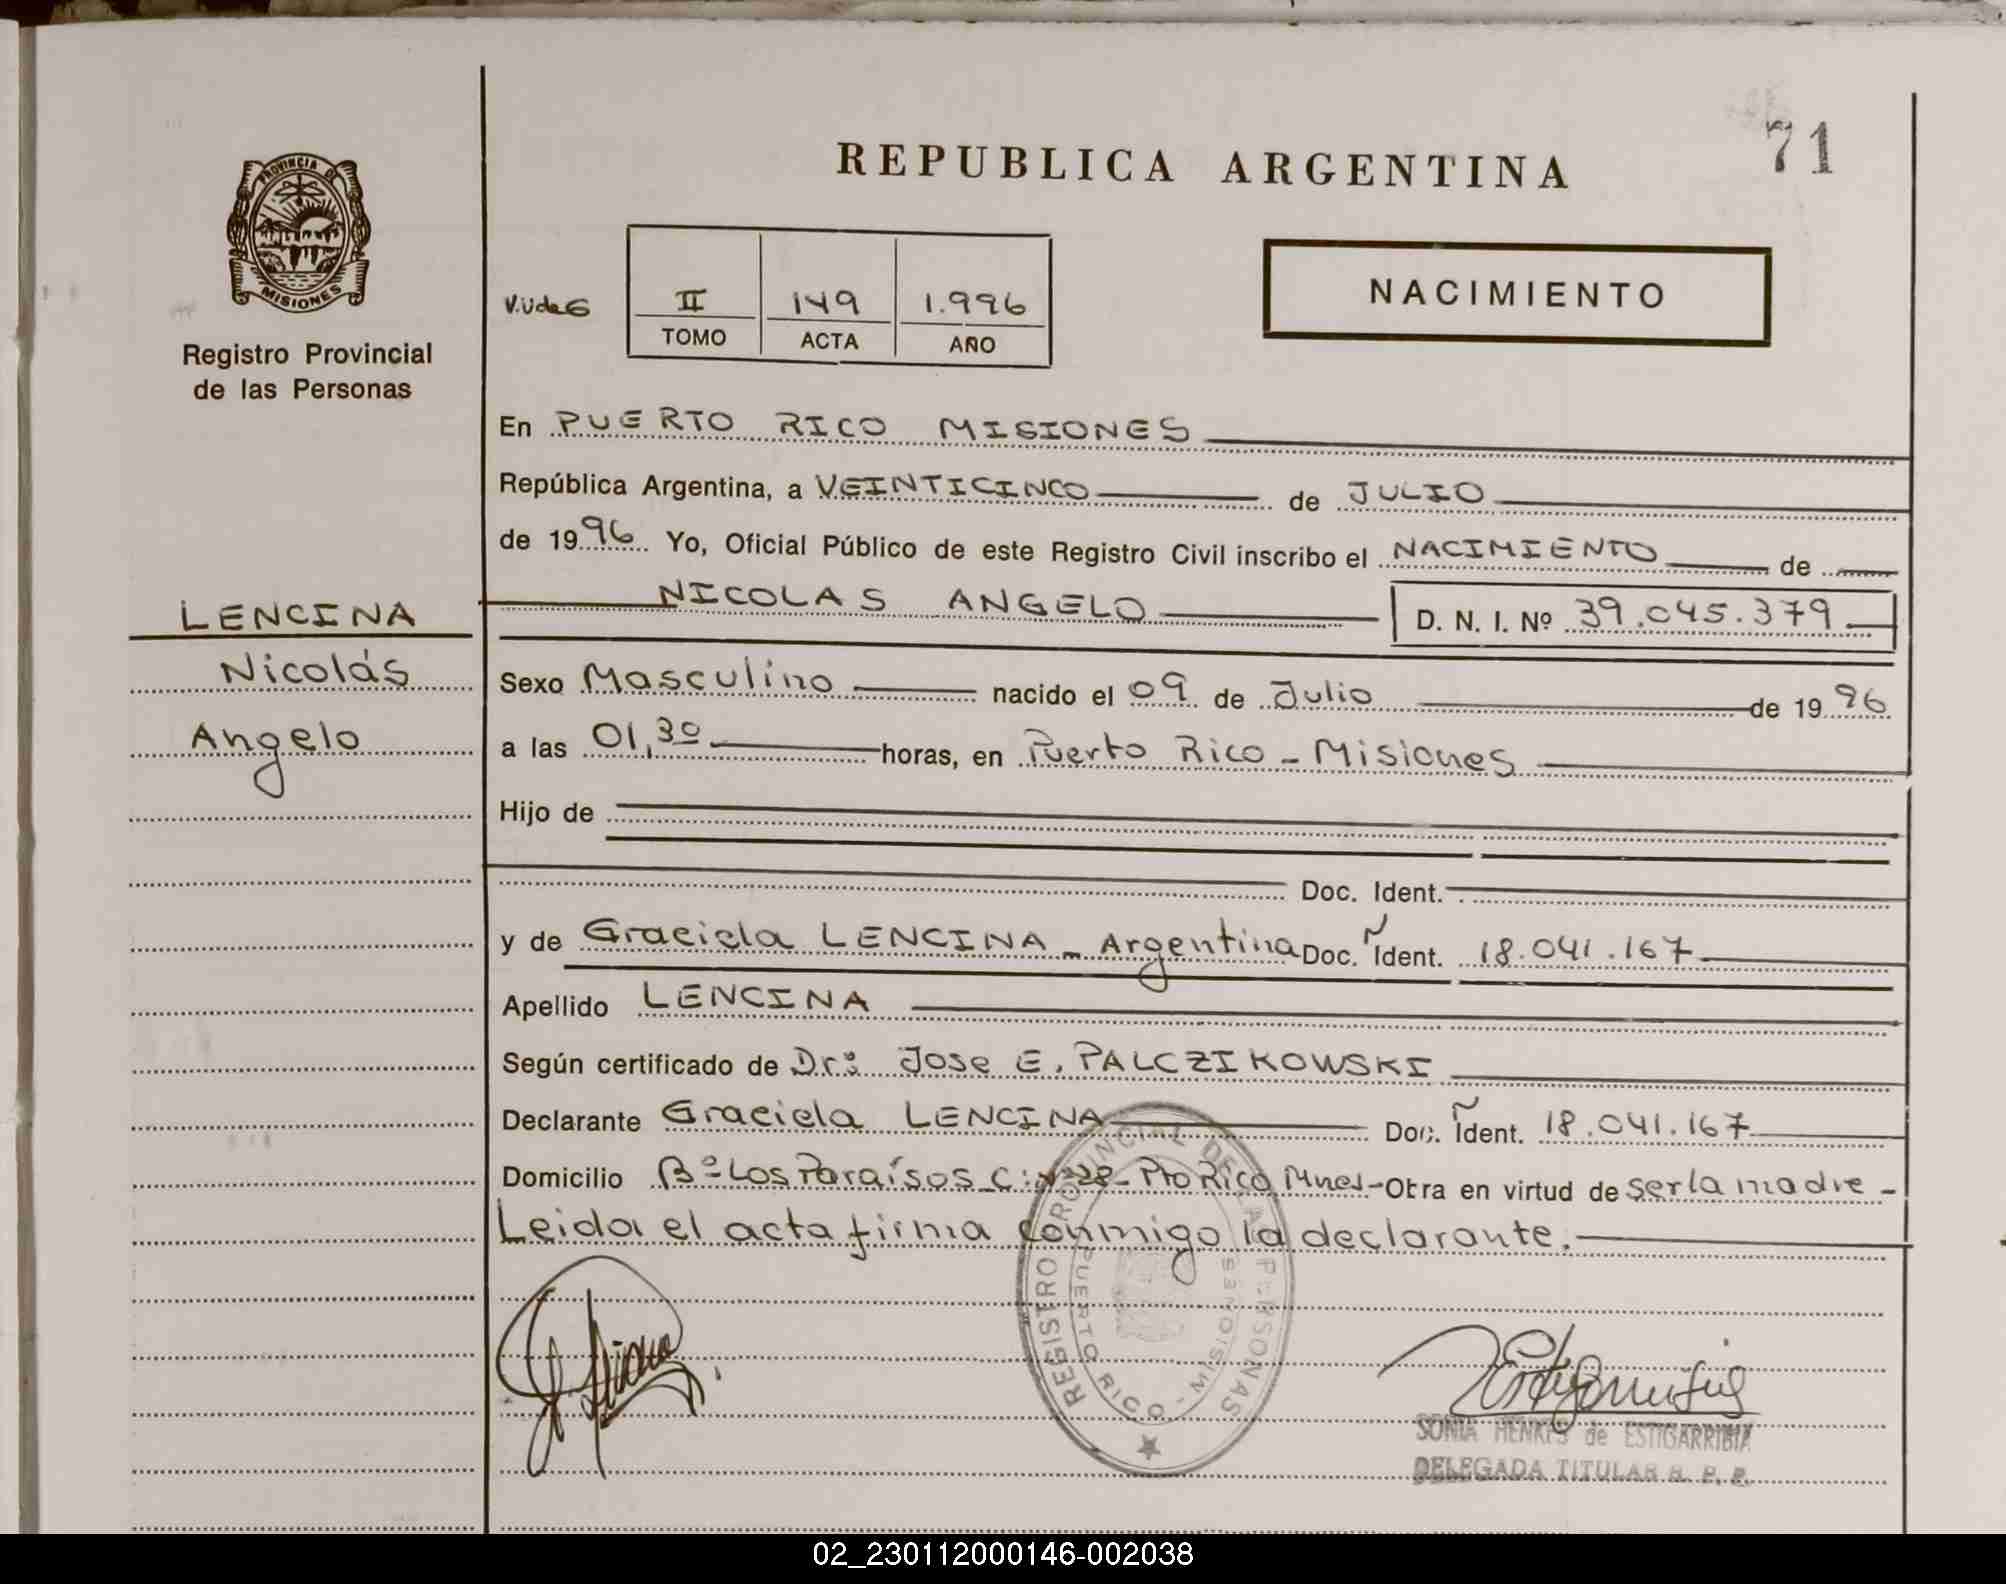 REPUBLICA ARGENTINA
71
PROVINCIA DE
MISIONES
Registro Provincial
de las Personas
II 149 1.996
TOMO ACTA AÑO
NACIMIENTO
En PUERTO RICO MISIONES
República Argentina, a VEINTICINCO de JULIO
de 1996 Yo, Oficial Público de este Registro Civil inscribo el NACIMIENTO de
NICOLAS ANGELO D. N. I. Nº 39.045.379
LENCINA
Nicolás
Angelo
Sexo Masculino nacido el 09 de Julio de 1996
a las 01,30 horas, en Puerto Rico - Misiones
Hijo de
Doc. Ident.
y de Graciela LENCINA - Argentina Doc. Ident. 18.041.167
Apellido LENCINA
Según certificado de Dr: Jose E. PALCZIKOWSKI
Declarante Graciela LENCINA Doc. Ident. 18.041.167
Domicilio Bº Los Paraísos C: Nº 28 - Pto Rico Mnes - Obra en virtud de ser la madre -
Leida el acta firma conmigo la declarante.
REGISTRO PROVINCIAL DE LAS PERSONAS
PUERTO RICO - MISIONES
SONIA HENKES de ESTIGARRIBIA
DELEGADA TITULAR R. P. P.
02_230112000146-002038